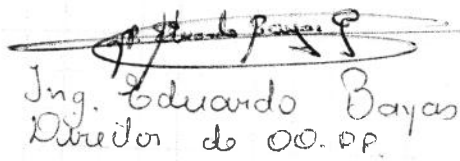 Eduardo Bayas G
Ing. Eduardo Bayas
Director de OO.PP.